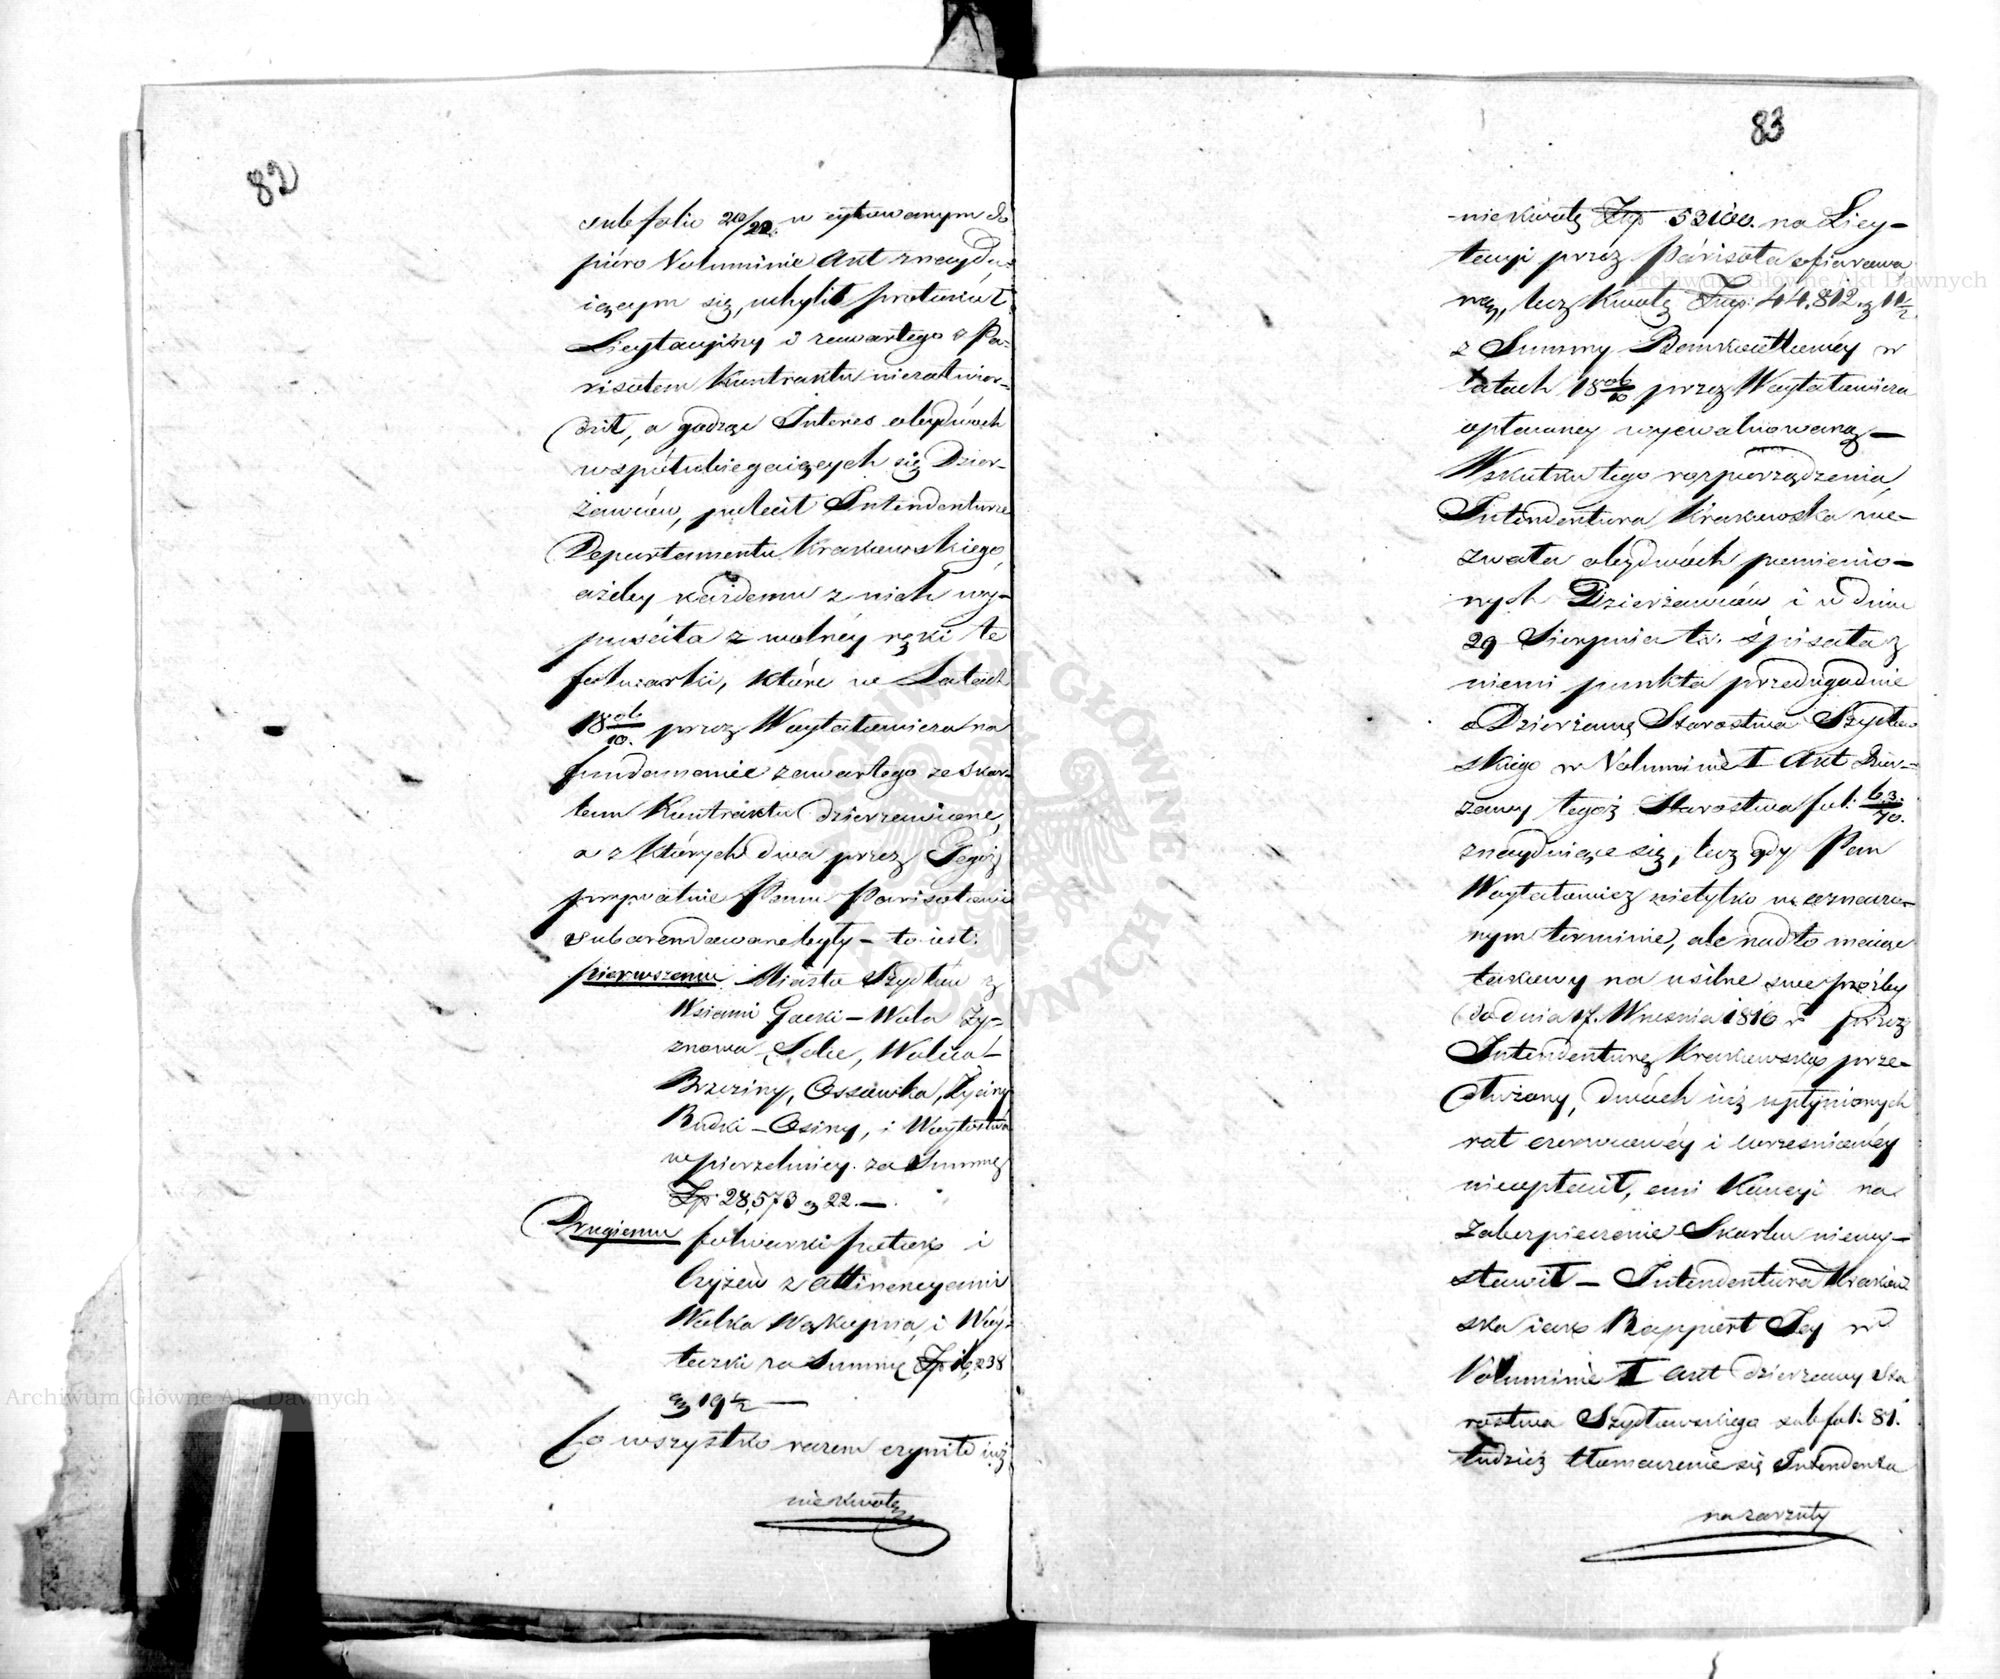 82
sub folio 20/22. w cytowanym do
piéro Voluminie Akt znaydu=
iącym się, uchylił protokuł
Licytacyiny i zawartego z Pa=
risotem Kontraktu niezatwier=
dził, a godząc Interes obydwóch
wspólubiegaiących się Dzier=
żawców, polecił Intendenturze
Departamentu Krakowskiego,
ażeby każdemu z nich wy=
puściła z wolnéy ręki te
folwarki, które w Latach
18 06/10. przez Woytatowicza na
fundamencie zawartego ze Skar=
bem Kontraktu dzierzawione,
a z których dwa przez Tegoż
prywatnie Panu Parisotowi
subarendowane były – to iest:
pierwszemu Miasto Szydłów z
Wsiami Gacki – Wola Ży=
znowa, Solec, Wolica –
Brzeziny, Ossówka, Życiny
Rudki – Osiny, i Woytostwo
w pierzchnicy. za Summę
Złp 28,573 g 22. –
Drugiemu folwarki potok i
Czyżów z attinencyami
Wolka Wąkopna, i Woy=
teczki za Summę Złp 16,238
g 19 ½ –
Co wszystko razem czyniło iuż
nie kwotę
83
nie kwotę Złp 53100. na Licy=
tacyi przez Parisota ofiarowa
ną, lecz kwotę Złp. 44.812. g 11 ½
z Summy Ramkoettlowéy w
latach 18 06/10 przez Woytatowicza
opłaconey wyewaluowaną –
Wskutku tego rozporządzenia,
Intendentura Krakowska we=
zwała obydwóch pomienio=
nych Dzierżawców i w dniu
29 Sierpnia t.r. spisała z
niemi punkta przedugodnie
o Dzierżawę Starostwa Szydłow
skiego w Voluminie I Akt Dzier=
zawy tegoż Starostwa fol: 63/70.
znayduiące się, lecz gdy Pan
Woytatowicz nietylko w oznaczo=
nym terminie, ale nadto maiąc
takowy na usilne swe prośby
do dnia 17. Wrzesnia 1816 r przez
Intendenturę Krakowską prze=
dłużony, dwóch iuż upłynionych
rat czerwcowéy i wrzesniowéy
nieopłacił, ani Kaucyi na
zabezpieczenie Skarbu niewy=
stawił – Intendentura Krakow
ska iako Rapport Jey w
Voluminie I akt dzierzawy Sta
rostwa Szydłowskiego sub fol: 81.
tudzież tłomaczenie się Intendenta
na zarzuty
Archiwum Główne Akt Dawnych